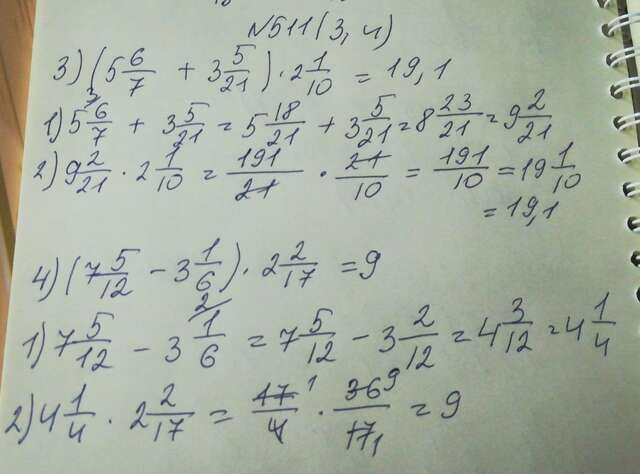 №511(3,4)
3) (5 6/7 + 3 5/21) · 2 1/10 = 19,1
1) 5 6/7 + 3 5/21 = 5 18/21 + 3 5/21 = 8 23/21 = 9 2/21
2) 9 2/21 · 2 1/10 = 191/21 · 21/10 = 191/10 = 19 1/10
= 19,1
4) (7 5/12 - 3 1/6) · 2 2/17 = 9
1) 7 5/12 - 3 1/6 = 7 5/12 - 3 2/12 = 4 3/12 = 4 1/4
2) 4 1/4 · 2 2/17 = 17 1/4 · 36 9/17 1 = 9